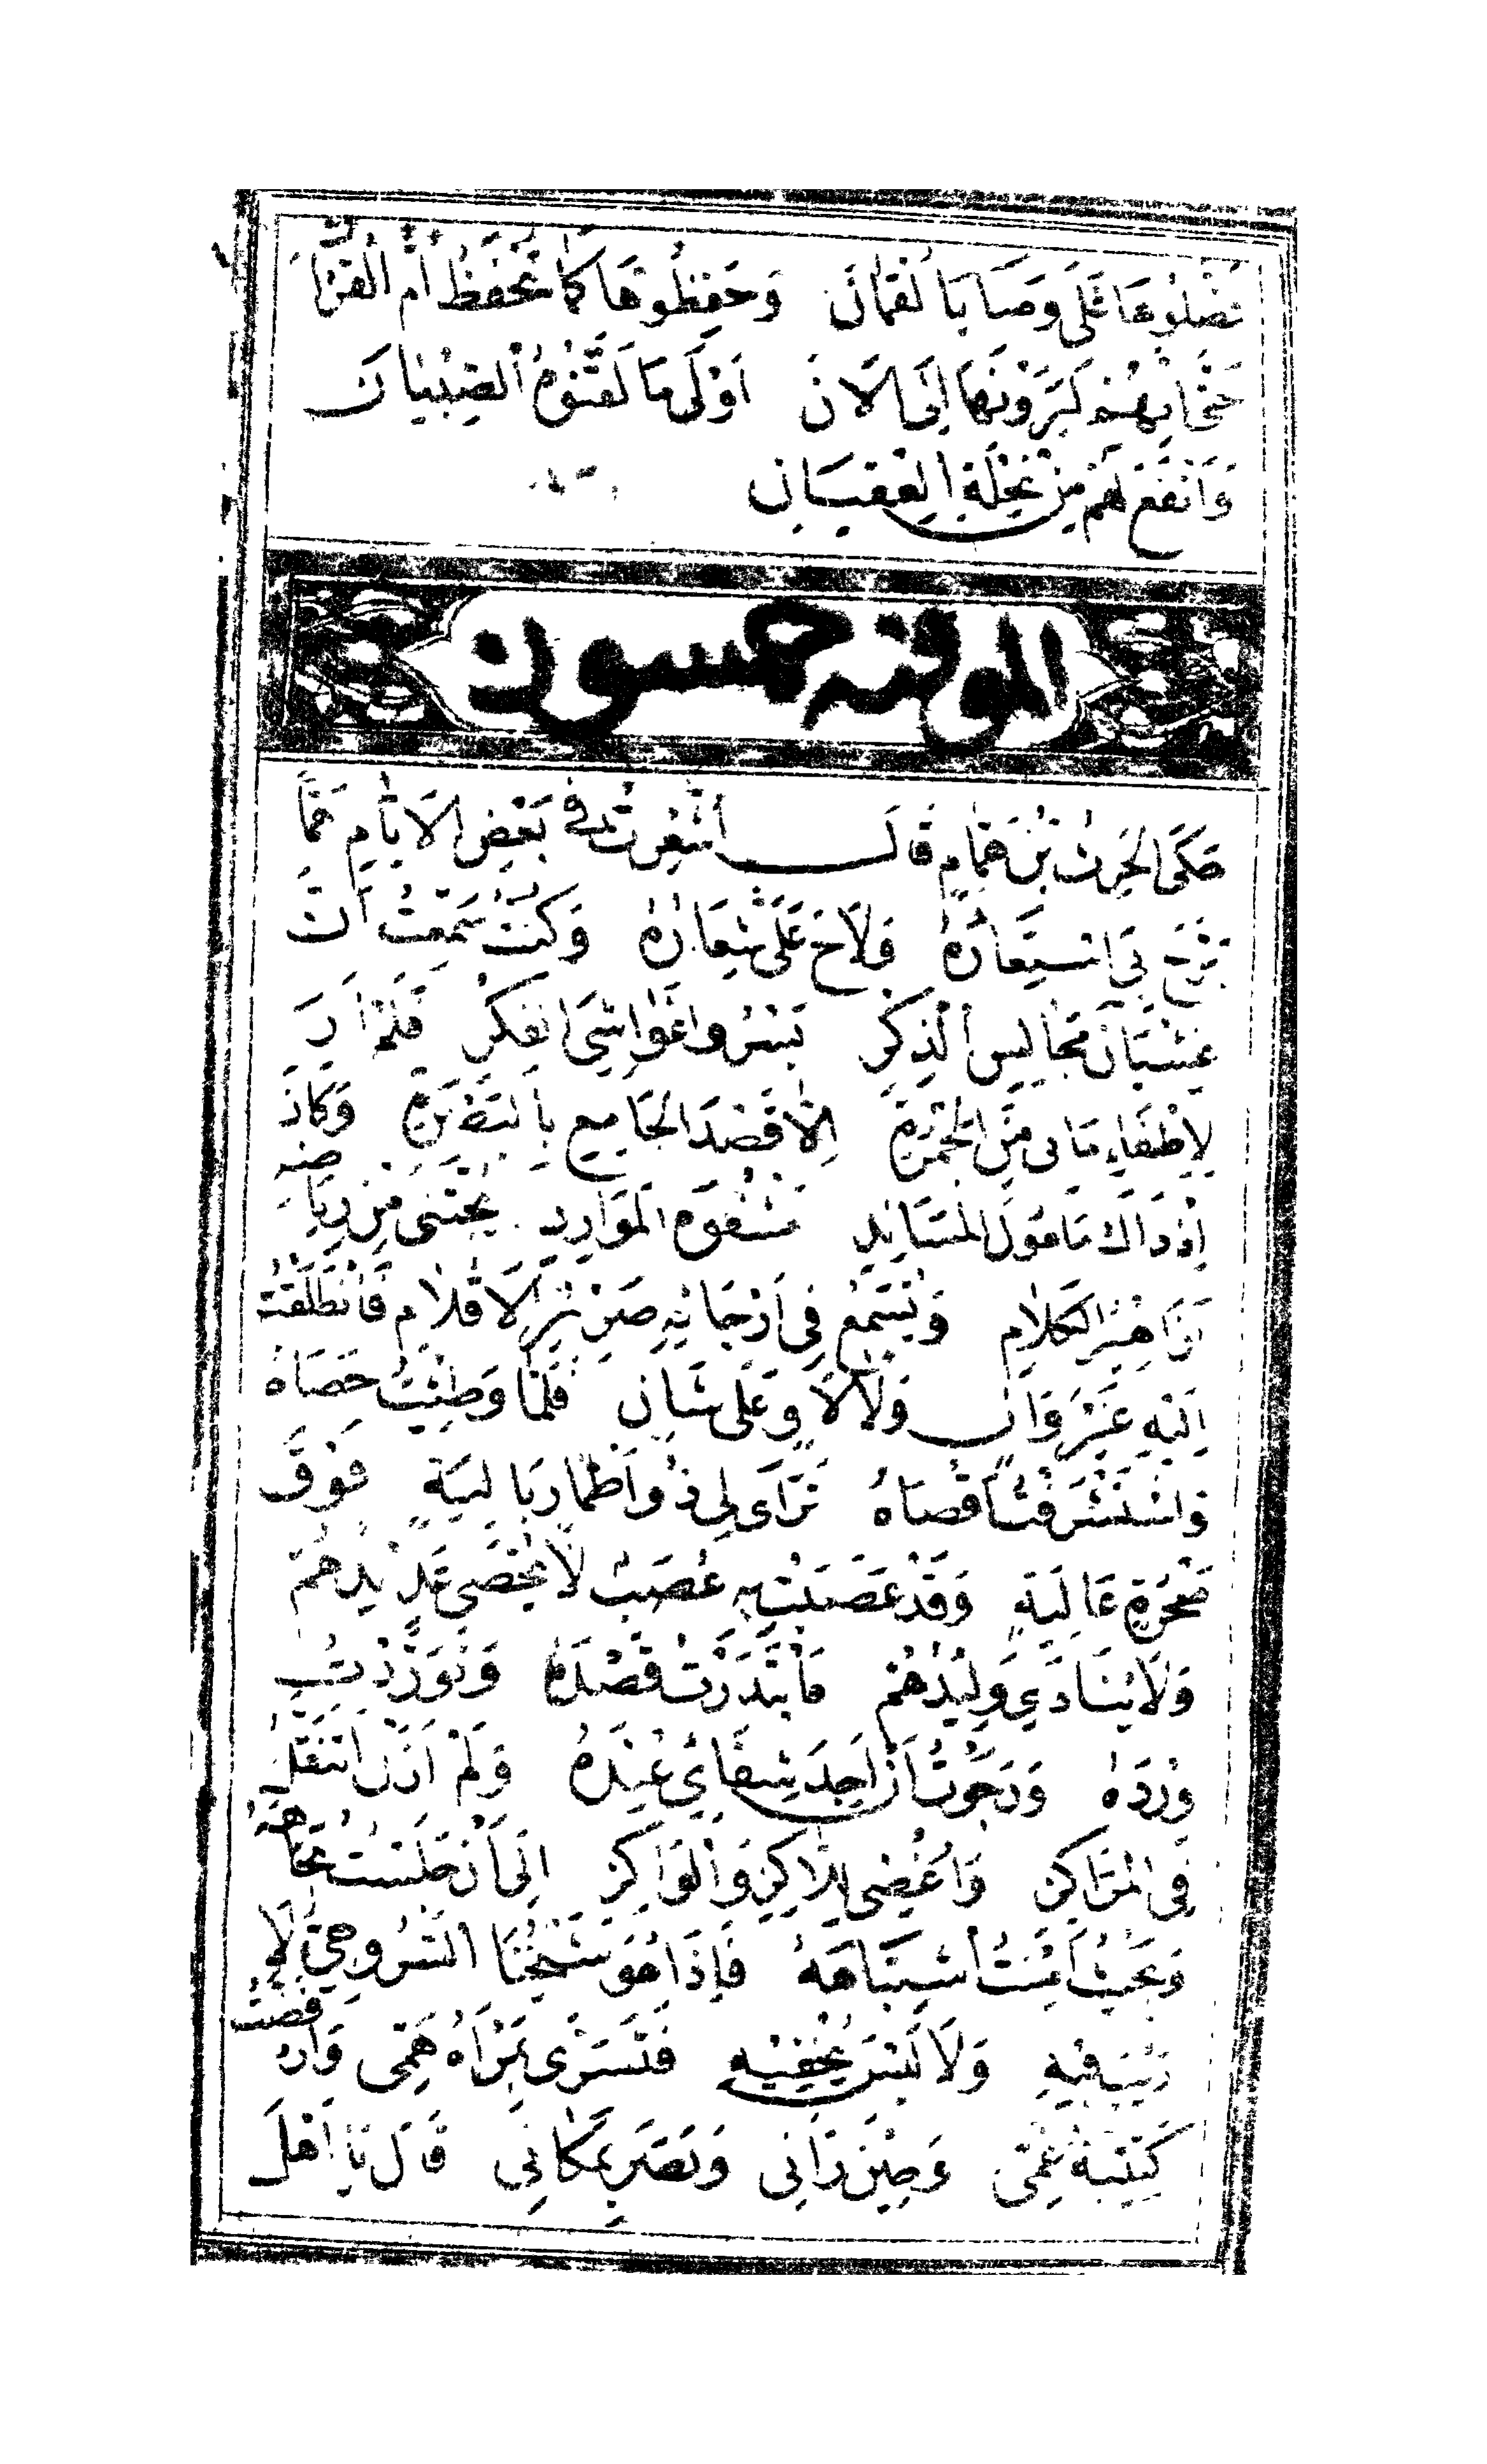 فضلوها على وصايا لقمان وحفظوها كما تحفظ أم القرآن
حتى إنهم ليرونها إلى الآن أولى ما لقنوه الصبيان
وأنفع لهم من نحلة العقيان
الموفية خمسون
حكى الحرث بن همام قال أشعرت في بعض الأيام هما
برح بي استعاره ولاح علي شعاره وكنت سمعت أن
غشيان مجالس الذكر يسرو غواشي الفكر فلم أر
لإطفاء ما بي من الجمرة إلا قصد الجامع بالبصرة وكان
إذ ذاك مأهول المساند مشفوه الموارد يجتنى من رياضه
أزاهير الكلام ويسمع في أرجائه صرير الأقلام فانطلقت
إليه غير وان ولا لاو على شان فلما وطئت حصاه
واستشرفت أقصاه تراءى لي ذو أطمار بالية فوق
صخرة عالية وقد عصبت به عصب لا يحصى عديدهم
ولا ينادى وليدهم فابتدرت قصده وتوردت
ورده ورجوت أن أجد شفائي عنده ولم أزل أتنقل
في المراكز وأغضي للاكز والواكز إلى أن جلست تجاهه
وبحيث أمنت اشتباهه فإذا هو شيخنا السروجي لا
ريب فيه ولا لبس يخفيه فتسرى بمرآه همي وارفضت
كتيبة غمي وحين رآني وبصر بمكاني قال يا أهل